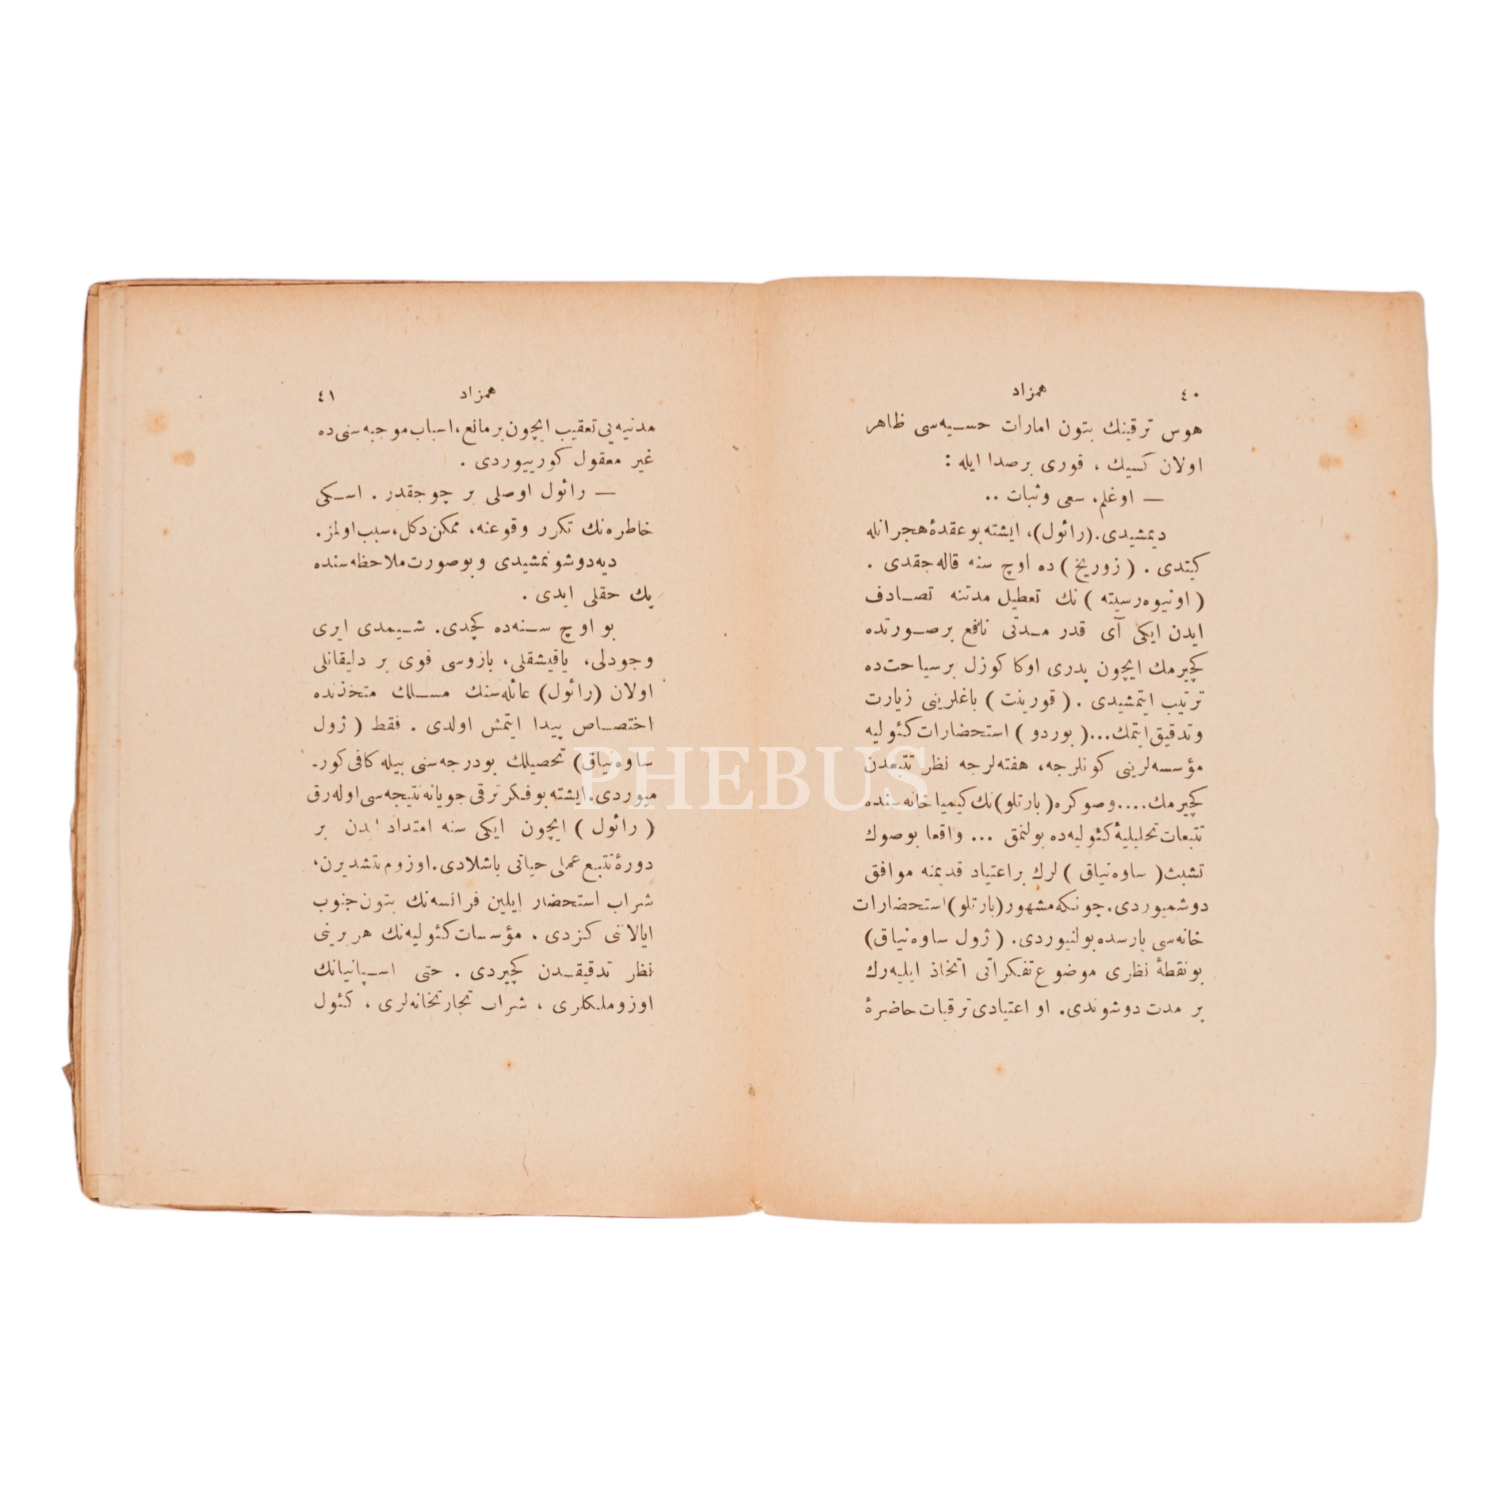 ٤٠
همزاد
هوس ترقينك بتون امارات حسـيه‌سى ظاهر
اولان كسيك ، قورى برصدا ايله :
— اوغلم، سعى وثبات ..
ديمشيدى. (رائول)، ايشته بو عقدهٔ هجرانله
كيتدى . ( زوريخ ) ده اوچ سنه قاله جقدى .
( اونيوه‌رسيته ) نك تعطيل مدتنه تصـادف
ايدن ايكى آى قدر مـدتى نافع برصـورتده
كچيرمك ايچون پدرى اوكا كوزل برسياحت‌ده
ترتيب ايتمشيدى . ( قورينت ) باغلرينى زيارت
وتدقيق ايتمك... ( بوردو ) استحضارات كئوليه
مؤسسه‌لرينى كونلرجه، هفته‌لرجه نظر تتبعدن
كچيرمك.... وصوكره ( بارتلو) نك كيمياخانه‌سنده
تتبعات تحليليهٔ كئوليه‌ده بولنمق ... واقعا بوصوك
تشبث ( ساوه‌نياق ) لرك براعتياد قديمنه موافق
دوشميوردى. چونكه مشهور (بارتلو) استحضارات
خانه‌سى پارسده بولنيوردى. ( ژول ساوه‌نياق)
بونقطهٔ نظرى موضوع تفكراتى اتخاذ ايليه‌رك
بر مدت دوشوندى. او اعتيادى ترقيات حاضرهٔ
همزاد
٤١
مدنيه‌يى تعقيب ايچون برمانع، اسباب موجبه‌سنى‌ده
غير معقول كورييوردى .
— رائول اوصلى بر چوجقدر . اسـكى
خاطره‌نك تكرر وقوعنه، ممكن دكل، سبب اولمز.
ديه‌دوشونمشيدى وبوصورت ملاحظه‌سنده
پك حقلى ايدى .
بو اوچ سـنه‌ده كچدى. شـيمدى ايرى
وجودلى، ياقيشقلى، بازوسى قوى بر دليقانلى
اولان (رائول) عائله‌سنك مسـلك متخذنده
اختصـاص پيدا ايتمش اولدى . فقط ( ژول
ساوه‌نياق) تحصيلك بودرجه‌سنى بيله كافى كور.
ميوردى. ايشته بوفكر ترقى جويانه نتيجه‌سى اوله‌رق
( رائول ) ايچون ايكى سنه امتداد ايدن بر
دورهٔ تتبع عملى حياتى باشلادى. اوزوم يتشديرن،
شراب استحضار ايلين فرانسه‌نك بتون جنوب
ايالاتنى كزدى . مؤسسات كئوليه‌نك هر برينى
نظر تدقيقـدن كچيردى . حتى اسـپانيانك
اوزوملكلرى ، شراب تجارتخانه‌لرى ، كئول
PHEBUS